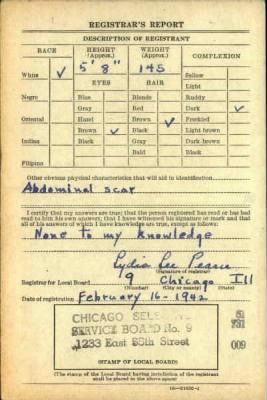 REGISTRAR'S REPORT
DESCRIPTION OF REGISTRANT
RACE HEIGHT (Approx.) WEIGHT (Approx.) COMPLEXION
5' 8" 145 Sallow
White ✓ EYES HAIR Light
Negro Blue Blonde Ruddy
Gray Red Dark ✓
Oriental Hazel Brown ✓ Freckled
Brown ✓ Black Light brown
Indian Black Gray Dark brown
Bald Black
Filipino
Other obvious physical characteristics that will aid in identification
Abdominal scar
I certify that my answers are true; that the person registered has read or has had
read to him his own answers; that I have witnessed his signature or mark and that
all of his answers of which I have knowledge are true, except as follows:
None to my Knowledge
Lydia Lee
(Signature of registrar)
Registrar for Local Board 9 Chicago Ill
(Number) (City or county) (State)
Date of registration February 16-1942
CHICAGO SELECTIVE
SERVICE BOARD No. 9
1233 East 55th Street
731
009
(STAMP OF LOCAL BOARD)
(The stamp of the Local Board having jurisdiction of the registrant
shall be placed in the above space)